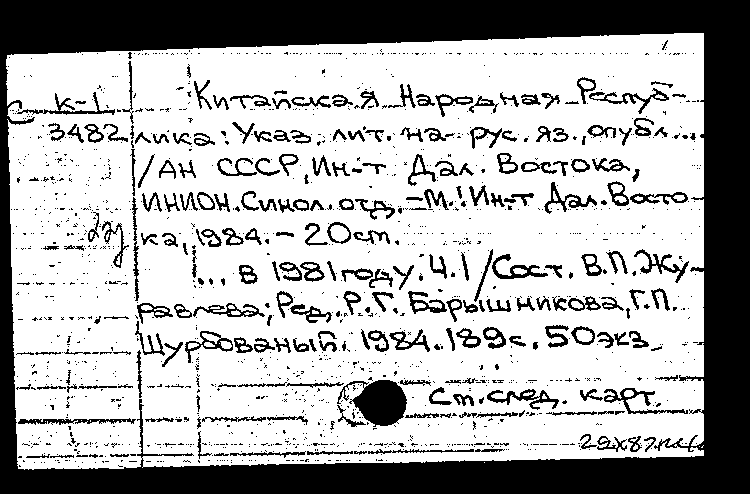 С К-1 Китайская Народная Респуб-
3482 лика: Указ. лит. на рус. яз., опубл....
/АН СССР, Ин-т Дал. Востока,
ИНИОН. Синол. отд. - М.: Ин-т Дал. Восто-
ка, 1984. - 20см.
... в 1981 году. Ч.1 / Сост. В.П. Жу-
равлева; Ред. Р.Г. Барышникова, Г.П.
Щурбованый. 1984. 189с. 50экз.
См. след. карт.